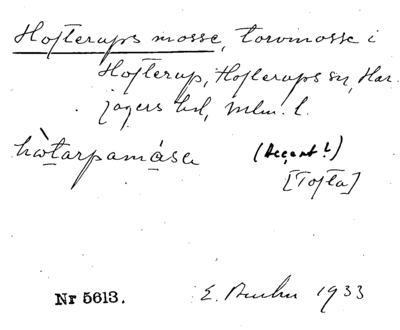 Hofterups mosse, torvmosse i
Hofterup, Hofterups sn, Har-
jagers hd, Mlm. l.
hòtarpamåsa (Accent!)
[Tofta]
Nr 5613. E. 1933